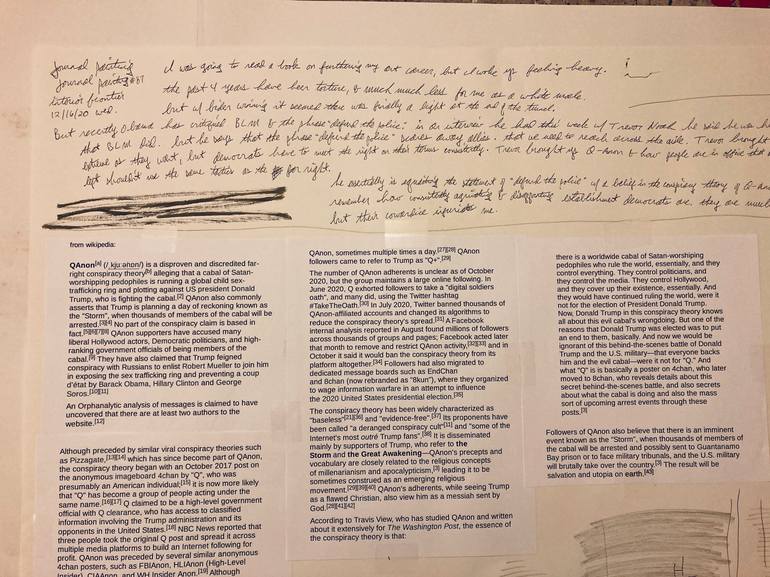 Journal painting
Journal painting #87
interior frontier
12/16/20 wed.
I was going to read a book on furthering my art career, but I woke up feeling heavy.
the past 4 years have been torture, & much much less for me as a white male.
but w/ biden winning it seemed there was finally a light at the end of the tunnel.
But recently Obama has critiqued BLM & the phrase "defund the police", in an interview he had this week w/ Trevor Noah he said he was
that BLM did. but he says that the phrase "defund the police" pushes away allies. that we need to reach across the aisle. Trevor brought
extreme as they want, but democrats have to meet the right on their terms consistently. Trevor brought up Q-Anon & how people are in office that
left shouldn't use the same tactics as the far right.
he essentially is equating the statement of "defund the police" w/ a belief in the conspiracy theory of Q-An
remember how consistently & disappointing establishment democrats are. they are much
but their cowardice infuriates me.
from wikipedia:
QAnon[a] (/ˌkjuːəˈnɒn/) is a disproven and discredited far-
right conspiracy theory[b] alleging that a cabal of Satan-
worshipping pedophiles is running a global child sex-
trafficking ring and plotting against US president Donald
Trump, who is fighting the cabal.[2] QAnon also commonly
asserts that Trump is planning a day of reckoning known as
the "Storm", when thousands of members of the cabal will be
arrested.[3][4] No part of the conspiracy claim is based in
fact.[5][6][7][8] QAnon supporters have accused many
liberal Hollywood actors, Democratic politicians, and high-
ranking government officials of being members of the
cabal.[9] They have also claimed that Trump feigned
conspiracy with Russians to enlist Robert Mueller to join him
in exposing the sex trafficking ring and preventing a coup
d'état by Barack Obama, Hillary Clinton and George
Soros.[10][11]
An Orphanalytic analysis of messages is claimed to have
uncovered that there are at least two authors to the
website.[12]
Although preceded by similar viral conspiracy theories such
as Pizzagate,[13][14] which has since become part of QAnon,
the conspiracy theory began with an October 2017 post on
the anonymous imageboard 4chan by "Q", who was
presumably an American individual;[15] it is now more likely
that "Q" has become a group of people acting under the
same name.[16][17] Q claimed to be a high-level government
official with Q clearance, who has access to classified
information involving the Trump administration and its
opponents in the United States.[18] NBC News reported that
three people took the original Q post and spread it across
multiple media platforms to build an Internet following for
profit. QAnon was preceded by several similar anonymous
4chan posters, such as FBIAnon, HLIAnon (High-Level
Insider), CIAAnon, and WH Insider Anon.[19] Although
QAnon, sometimes multiple times a day.[27][28] QAnon
followers came to refer to Trump as "Q+".[29]
The number of QAnon adherents is unclear as of October
2020, but the group maintains a large online following. In
June 2020, Q exhorted followers to take a "digital soldiers
oath", and many did, using the Twitter hashtag
#TakeTheOath.[30] In July 2020, Twitter banned thousands of
QAnon-affiliated accounts and changed its algorithms to
reduce the conspiracy theory's spread.[31] A Facebook
internal analysis reported in August found millions of followers
across thousands of groups and pages; Facebook acted later
that month to remove and restrict QAnon activity,[32][33] and in
October it said it would ban the conspiracy theory from its
platform altogether.[34] Followers had also migrated to
dedicated message boards such as EndChan
and 8chan (now rebranded as "8kun"), where they organized
to wage information warfare in an attempt to influence
the 2020 United States presidential election.[35]
The conspiracy theory has been widely characterized as
"baseless"[21][36] and "evidence-free".[37] Its proponents have
been called "a deranged conspiracy cult"[11] and "some of the
Internet's most outré Trump fans".[38] It is disseminated
mainly by supporters of Trump, who refer to the
Storm and the Great Awakening—QAnon's precepts and
vocabulary are closely related to the religious concepts
of millenarianism and apocalypticism,[3] leading it to be
sometimes construed as an emerging religious
movement.[28][39][40] QAnon's adherents, while seeing Trump
as a flawed Christian, also view him as a messiah sent by
God.[28][41][42]
According to Travis View, who has studied QAnon and written
about it extensively for The Washington Post, the essence of
the conspiracy theory is that:
there is a worldwide cabal of Satan-worshiping
pedophiles who rule the world, essentially, and they
control everything. They control politicians, and
they control the media. They control Hollywood,
and they cover up their existence, essentially. And
they would have continued ruling the world, were it
not for the election of President Donald Trump.
Now, Donald Trump in this conspiracy theory knows
all about this evil cabal's wrongdoing. But one of the
reasons that Donald Trump was elected was to put
an end to them, basically. And now we would be
ignorant of this behind-the-scenes battle of Donald
Trump and the U.S. military—that everyone backs
him and the evil cabal—were it not for "Q." And
what "Q" is is basically a poster on 4chan, who later
moved to 8chan, who reveals details about this
secret behind-the-scenes battle, and also secrets
about what the cabal is doing and also the mass
sort of upcoming arrest events through these
posts.[3]
Followers of QAnon also believe that there is an imminent
event known as the "Storm", when thousands of members of
the cabal will be arrested and possibly sent to Guantanamo
Bay prison or to face military tribunals, and the U.S. military
will brutally take over the country.[3] The result will be
salvation and utopia on earth.[43]